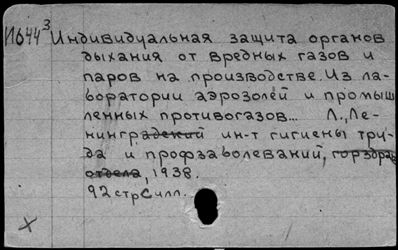 И644³ Индивидуальная защита органов
дыхания от вредных газов и
паров на производстве. Из ла-
боратории аэрозолей и промыш
ленных противогазов... Л., Ле-
нинградский ин-т гигиены тру-
да и профзаболеваний, горздрав
отдела, 1938.
92 стр с илл.